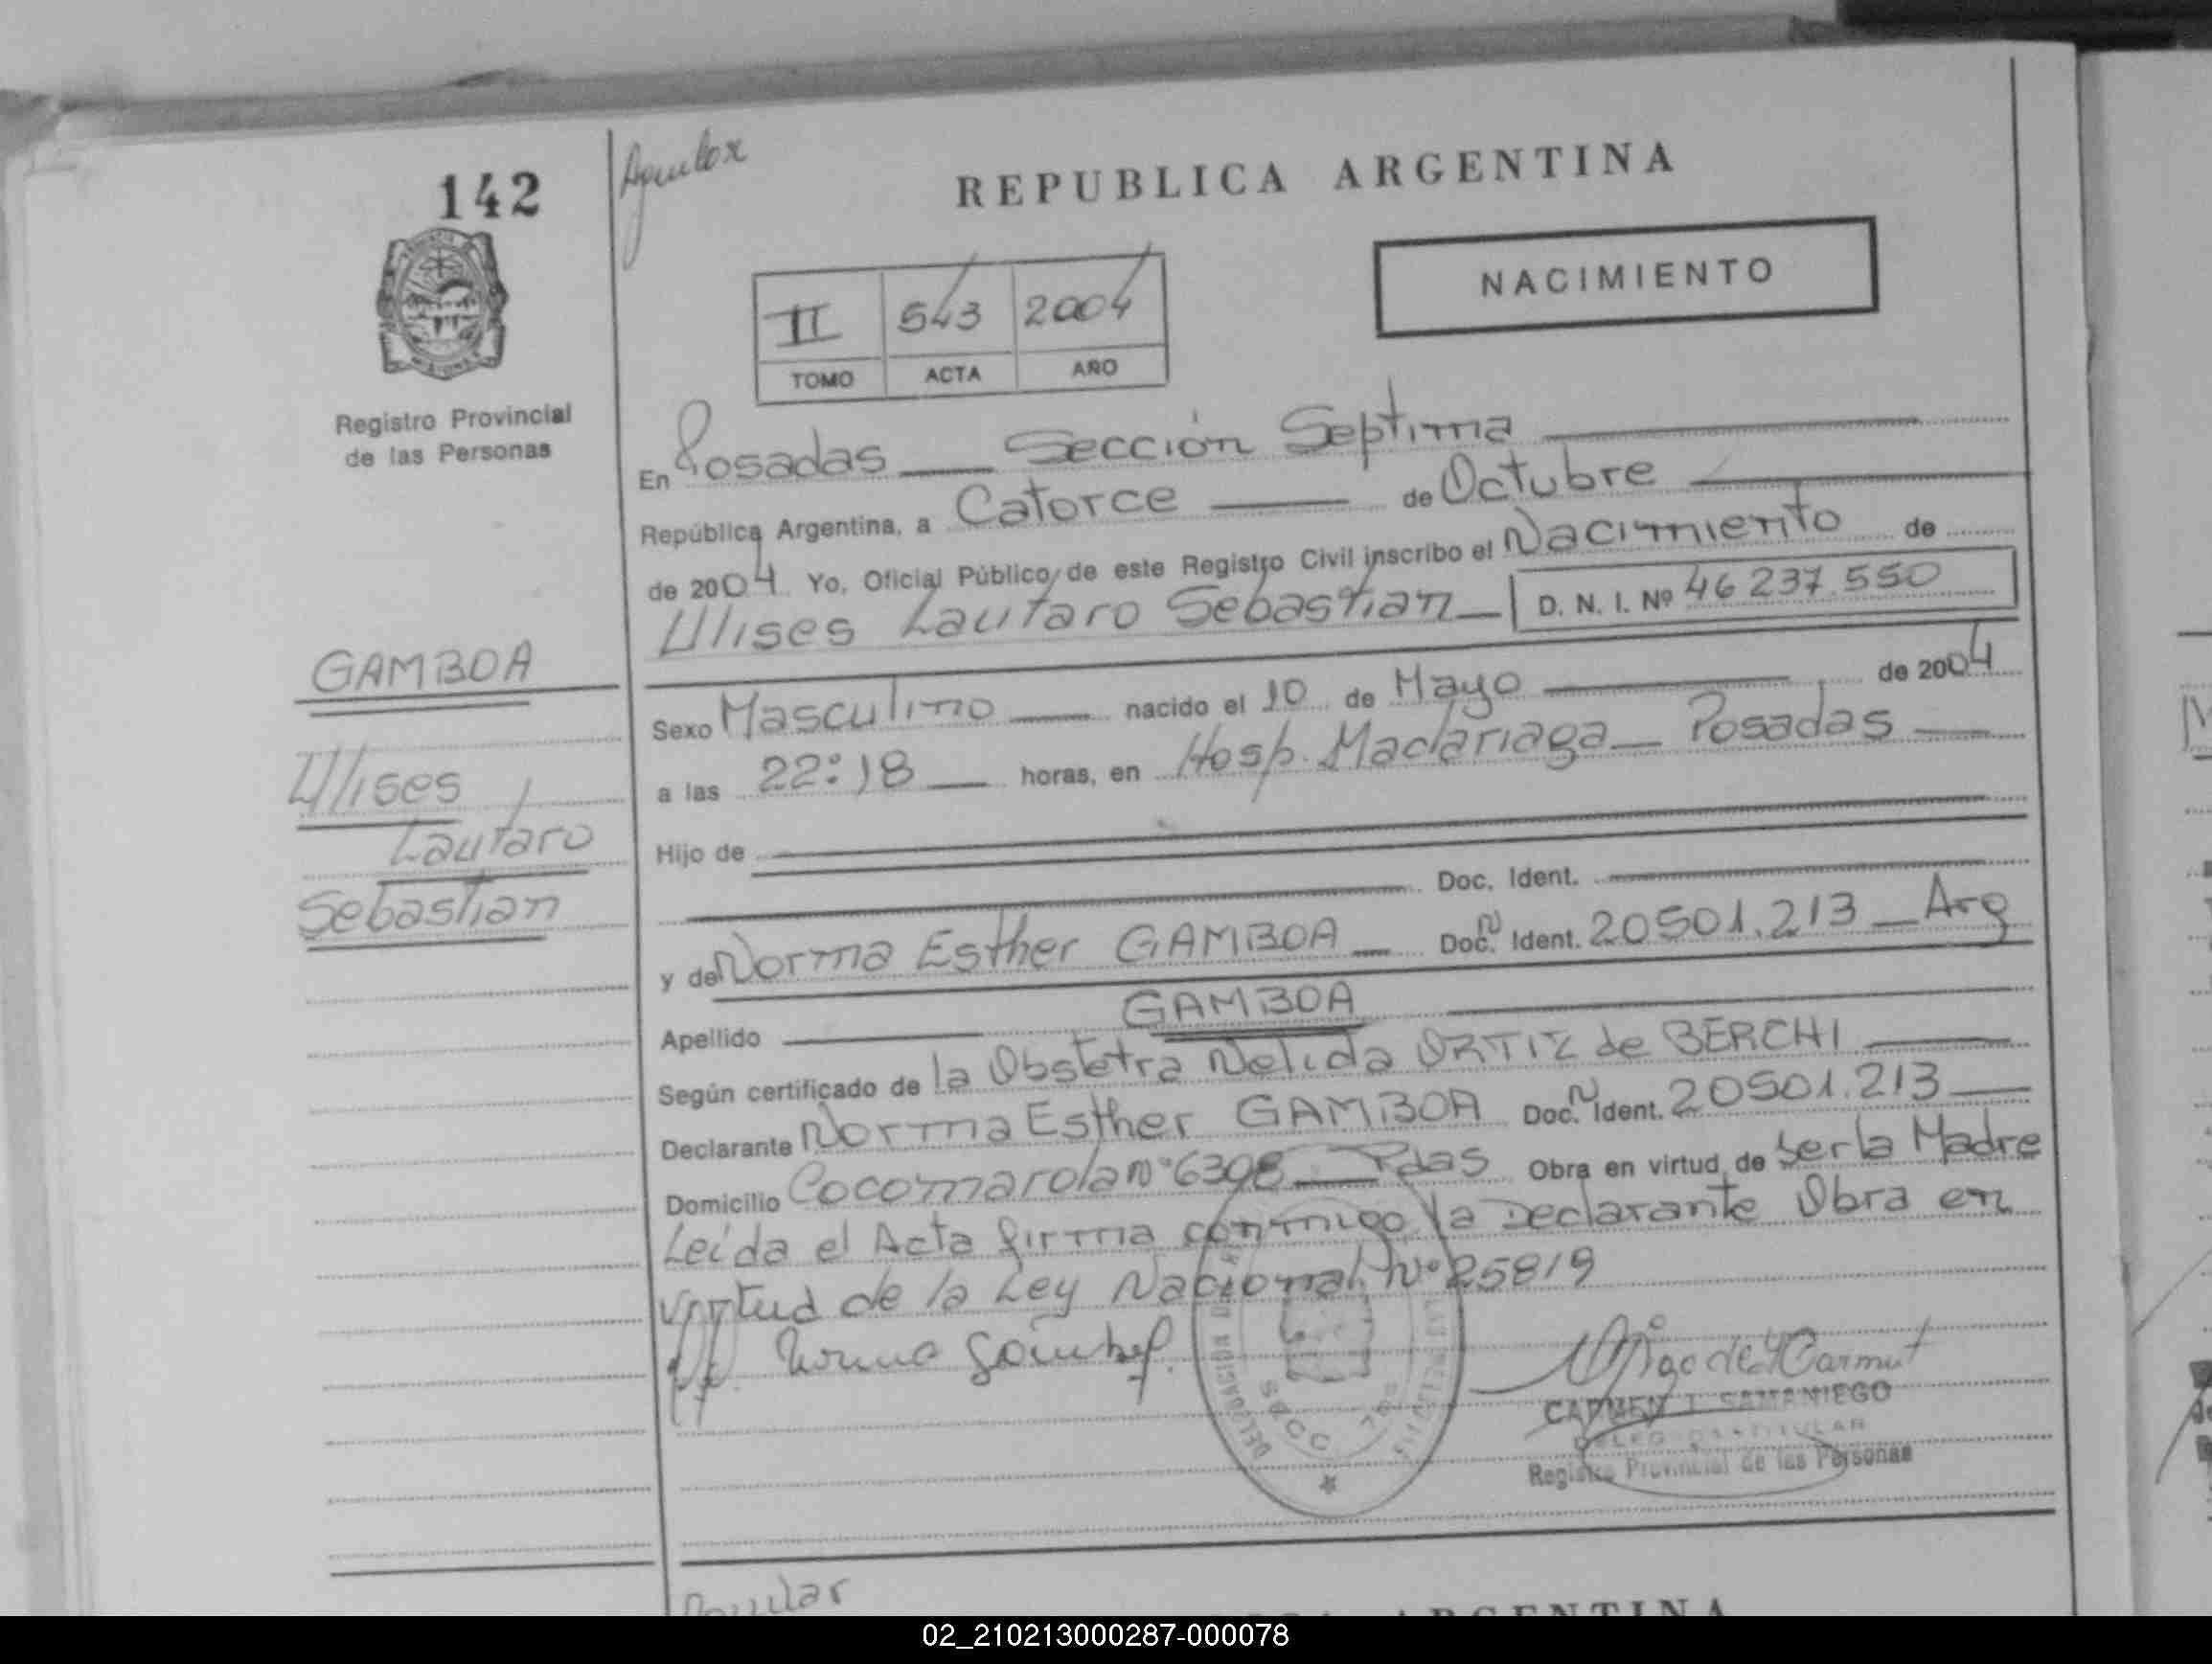 142
Registro Provincial
de las Personas
GAMBOA
Ulises
Lautaro
Sebastian
REPUBLICA ARGENTINA
NACIMIENTO
II 543 2004
TOMO ACTA AÑO
En Posadas — Sección Septima
República Argentina, a Catorce — de Octubre
de 2004 Yo, Oficial Público de este Registro Civil inscribo el Nacimiento de
Ulises Lautaro Sebastian — D. N. I. Nº 46 237.550
Sexo Masculino — nacido el 10 de Mayo — de 2004
a las 22:18 — horas, en Hosp. Madariaga — Posadas —
Hijo de
Doc. Ident.
y de Norma Esther GAMBOA — Doc. N Ident. 20501.213 — Arg
Apellido — GAMBOA
Según certificado de la Obstetra Nelida ORTIZ de BERCHI —
Declarante Norma Esther GAMBOA Doc. N Ident. 20501.213 —
Domicilio Cocomarola Nº 6398 — Pdas Obra en virtud de Ser la Madre
Leida el Acta firma conmigo la Declarante Obra en
virtud de la Ley Nacional Nº 25819
CARMEN T. SAMANIEGO
Registro Provincial de las Personas
ARGENTINA
02_210213000287-000078